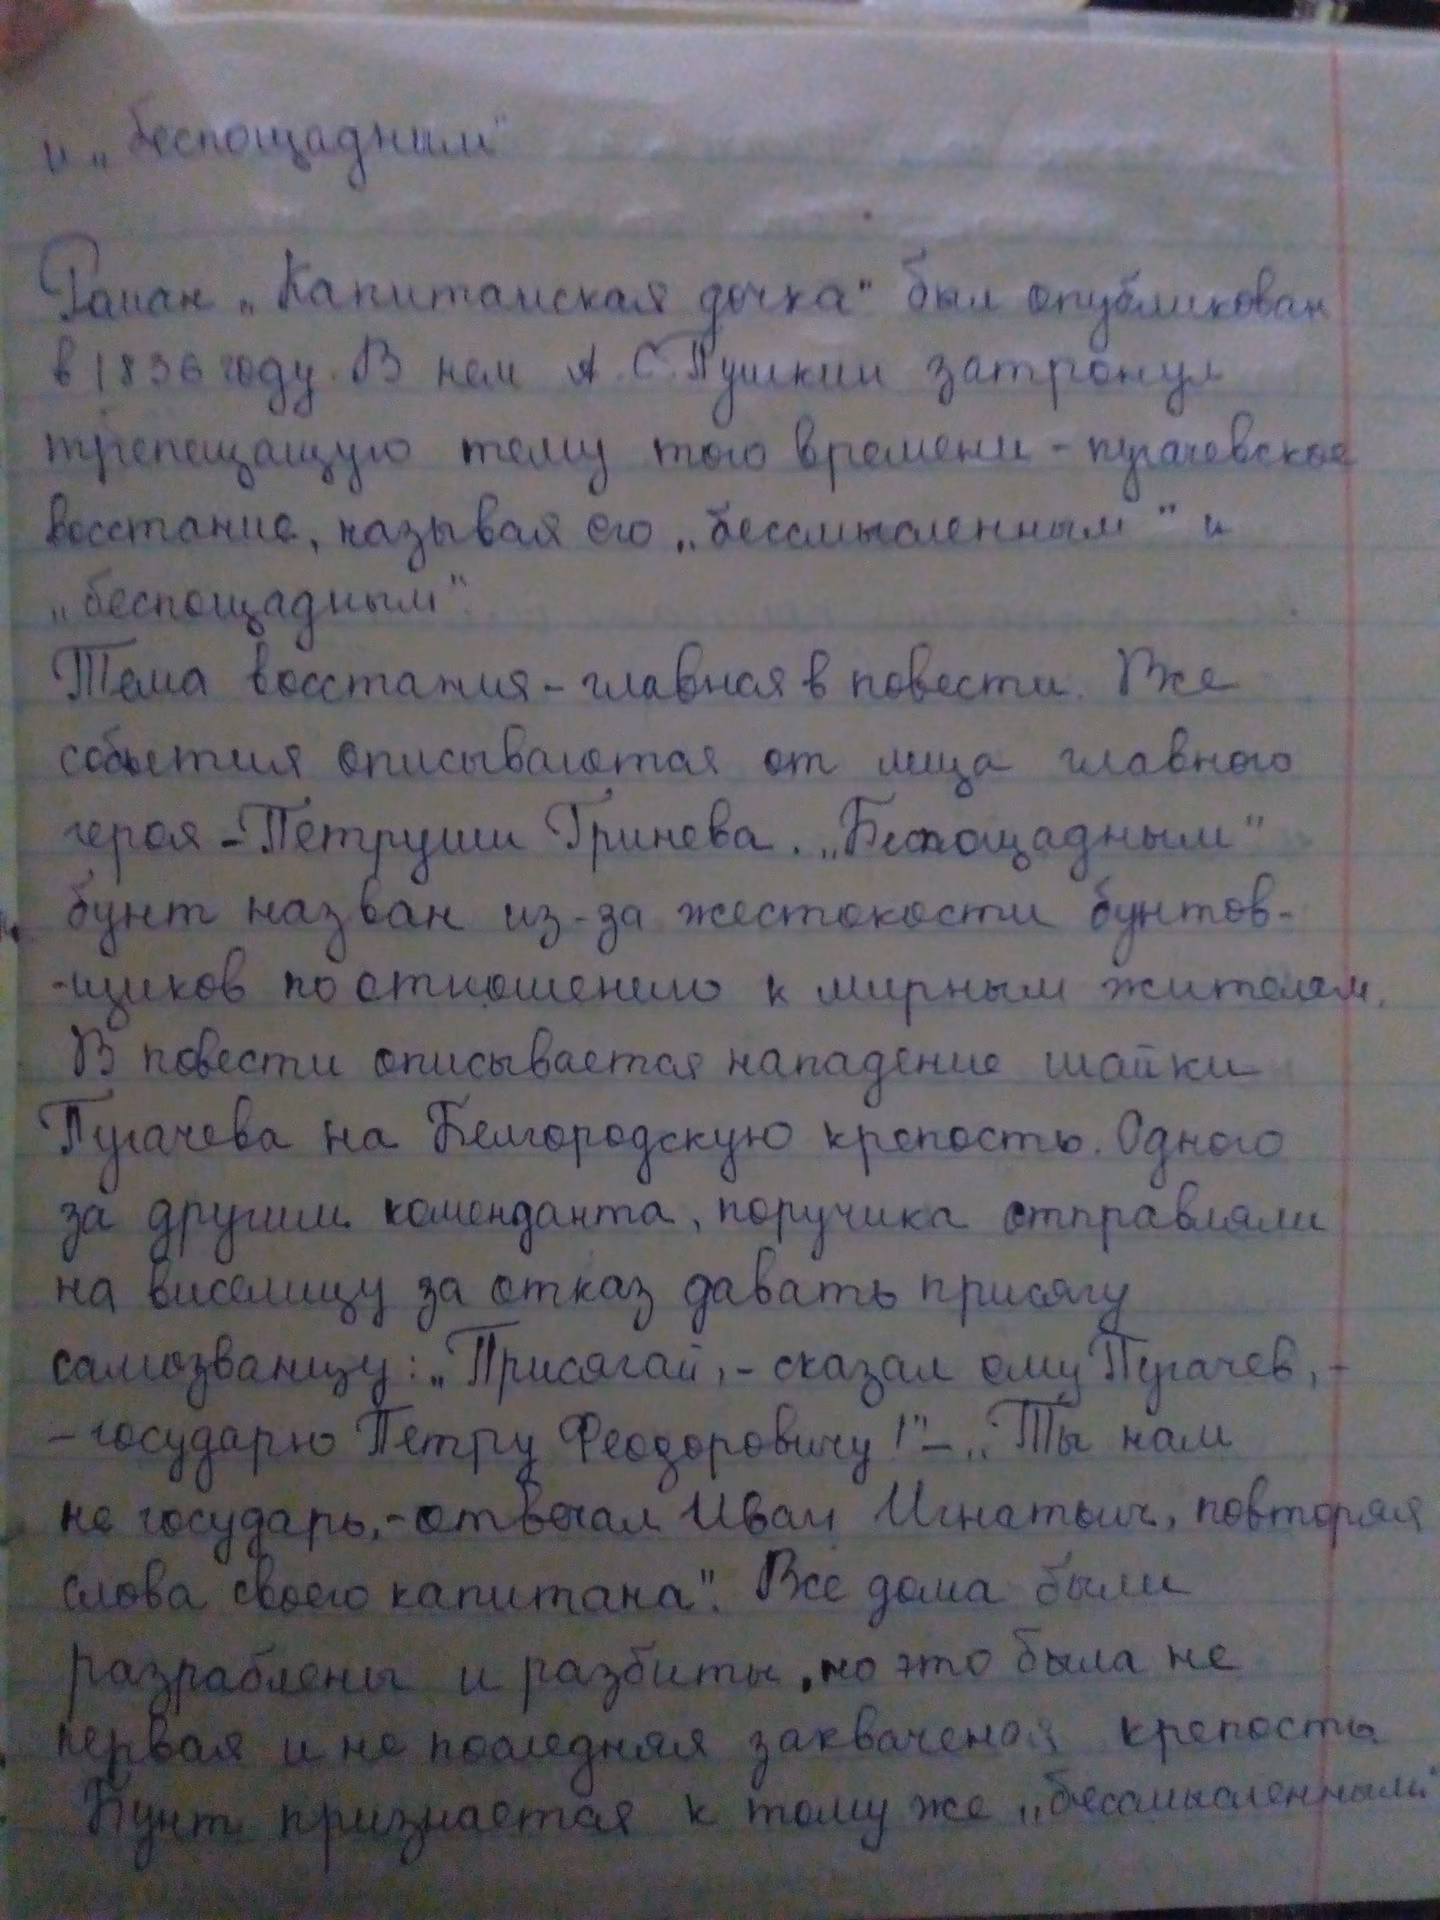 и „беспощадным"
Раман „Капитанская дочка" был опубликован
в 1836 году. В нем А.С.Пушкин затронул
трепещащую тему того времени - пугачевское
восстание, называя его „бессмысленным" и
„беспощадным".
Тема восстания - главная в повести. Все
события описываются от лица главного
героя - Петруши Гринева. „Беспощадным"
бунт назван из-за жестокости бунтов-
-щиков по отношению к мирным жителям.
В повести описывается нападение шайки
Пугачева на Белгородскую крепость. Одного
за другим коменданта, поручика отправляли
на виселицу за отказ давать присягу
самозванцу: „Присягай, - сказал ему Пугачев, -
- государю Петру Феодоровичу!" - „Ты нам
не государь, - отвечал Иван Игнатьич, повторяя
слова своего капитана". Все дома были
разраблены и разбиты, но это была не
первая и не последняя заквяченая крепость.
Бунт признается к тому же „бессмысленным"